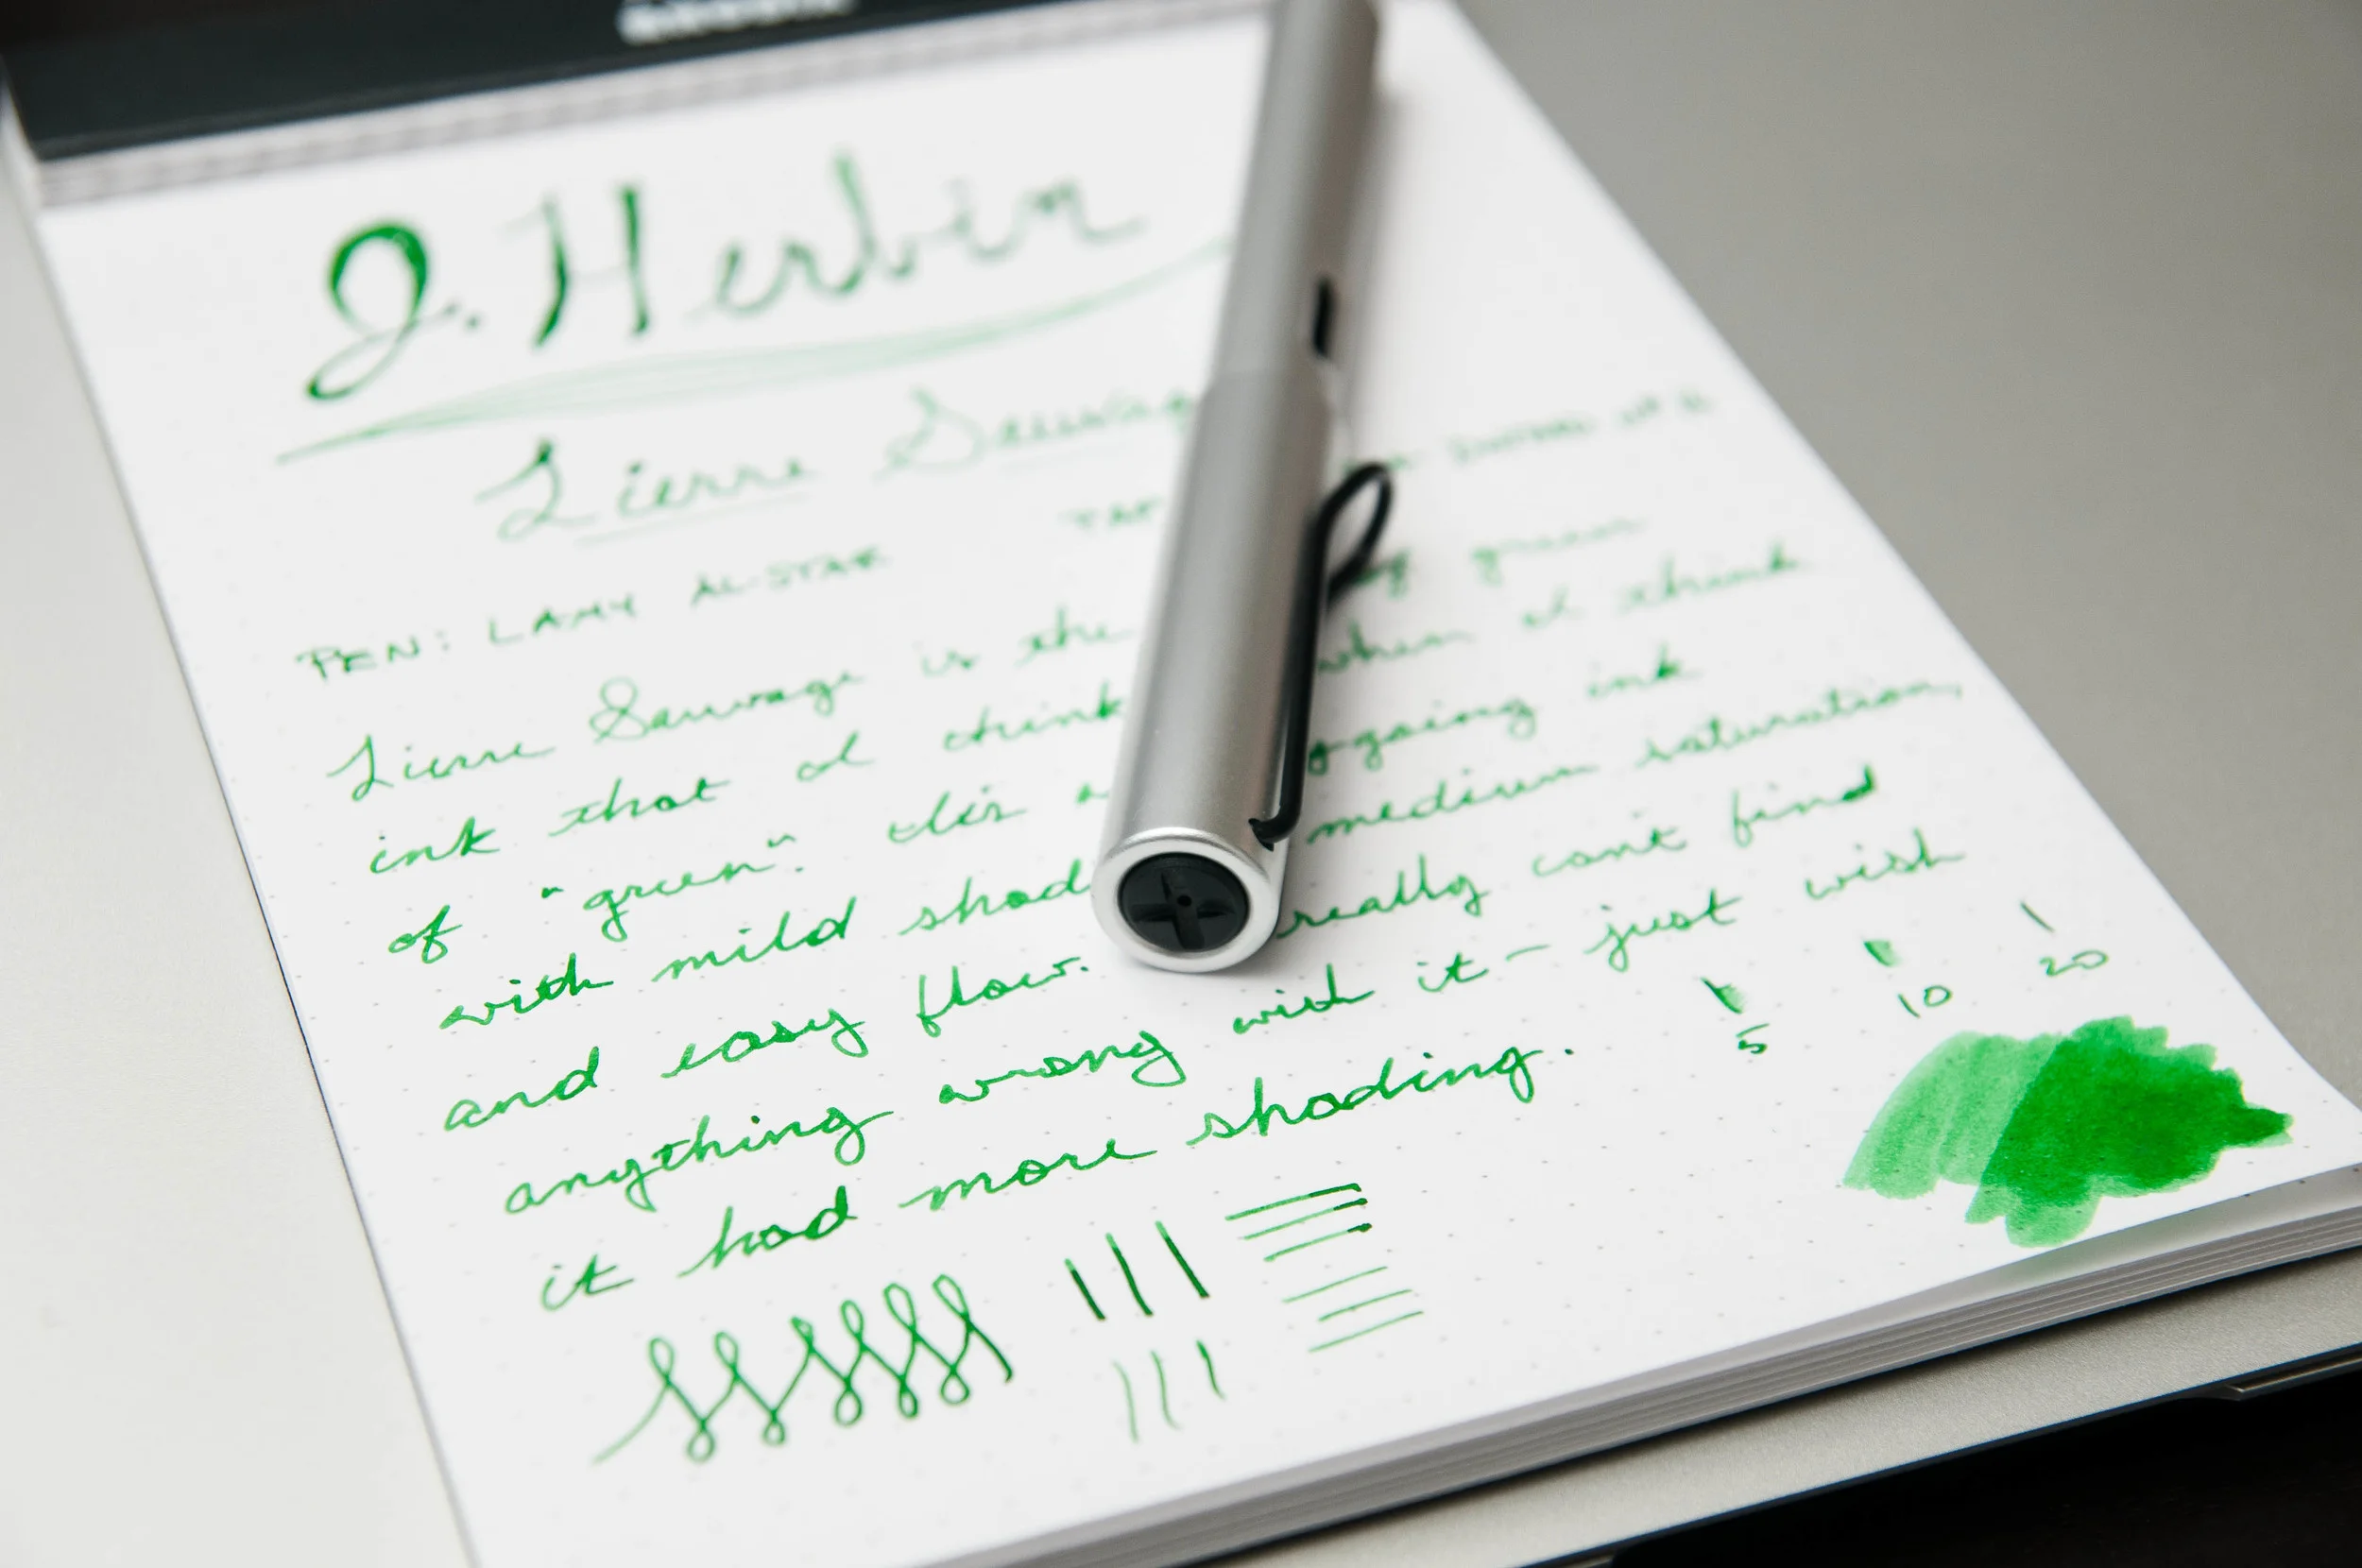 J. Herbin
Lierre Sauvag
PEN: LAMY AL-STAR
Lierre Sauvage is the green
ink that I think when I think
of "green". It's going ink
with mild shad medium saturation,
and easy flow. really can't find
anything wrong with it - just wish
it had more shading.
5 10 20